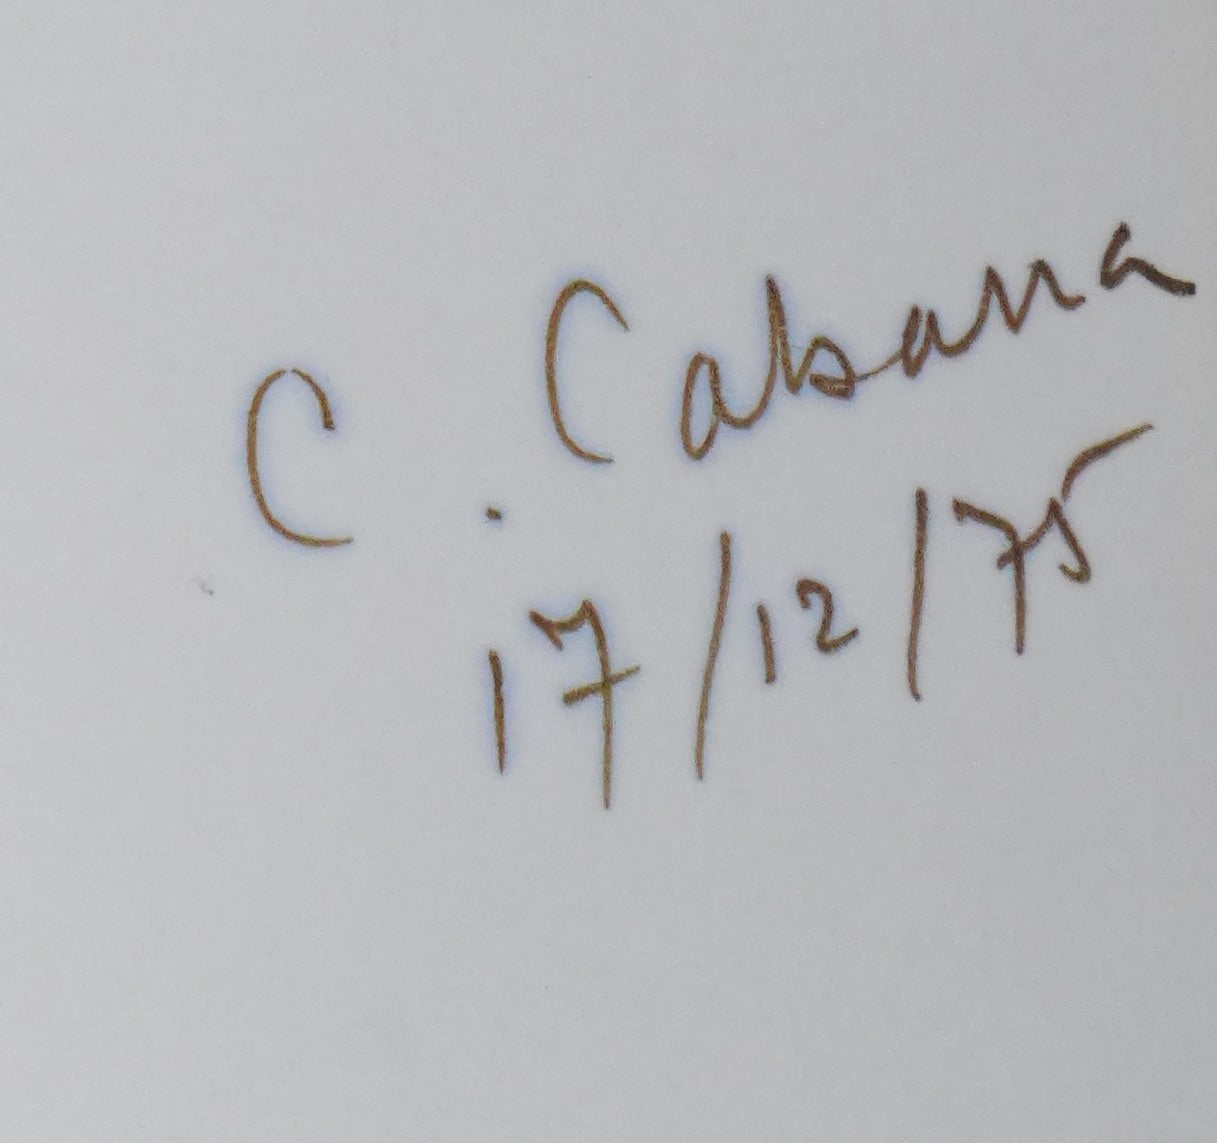 C. Cabana
17/12/75